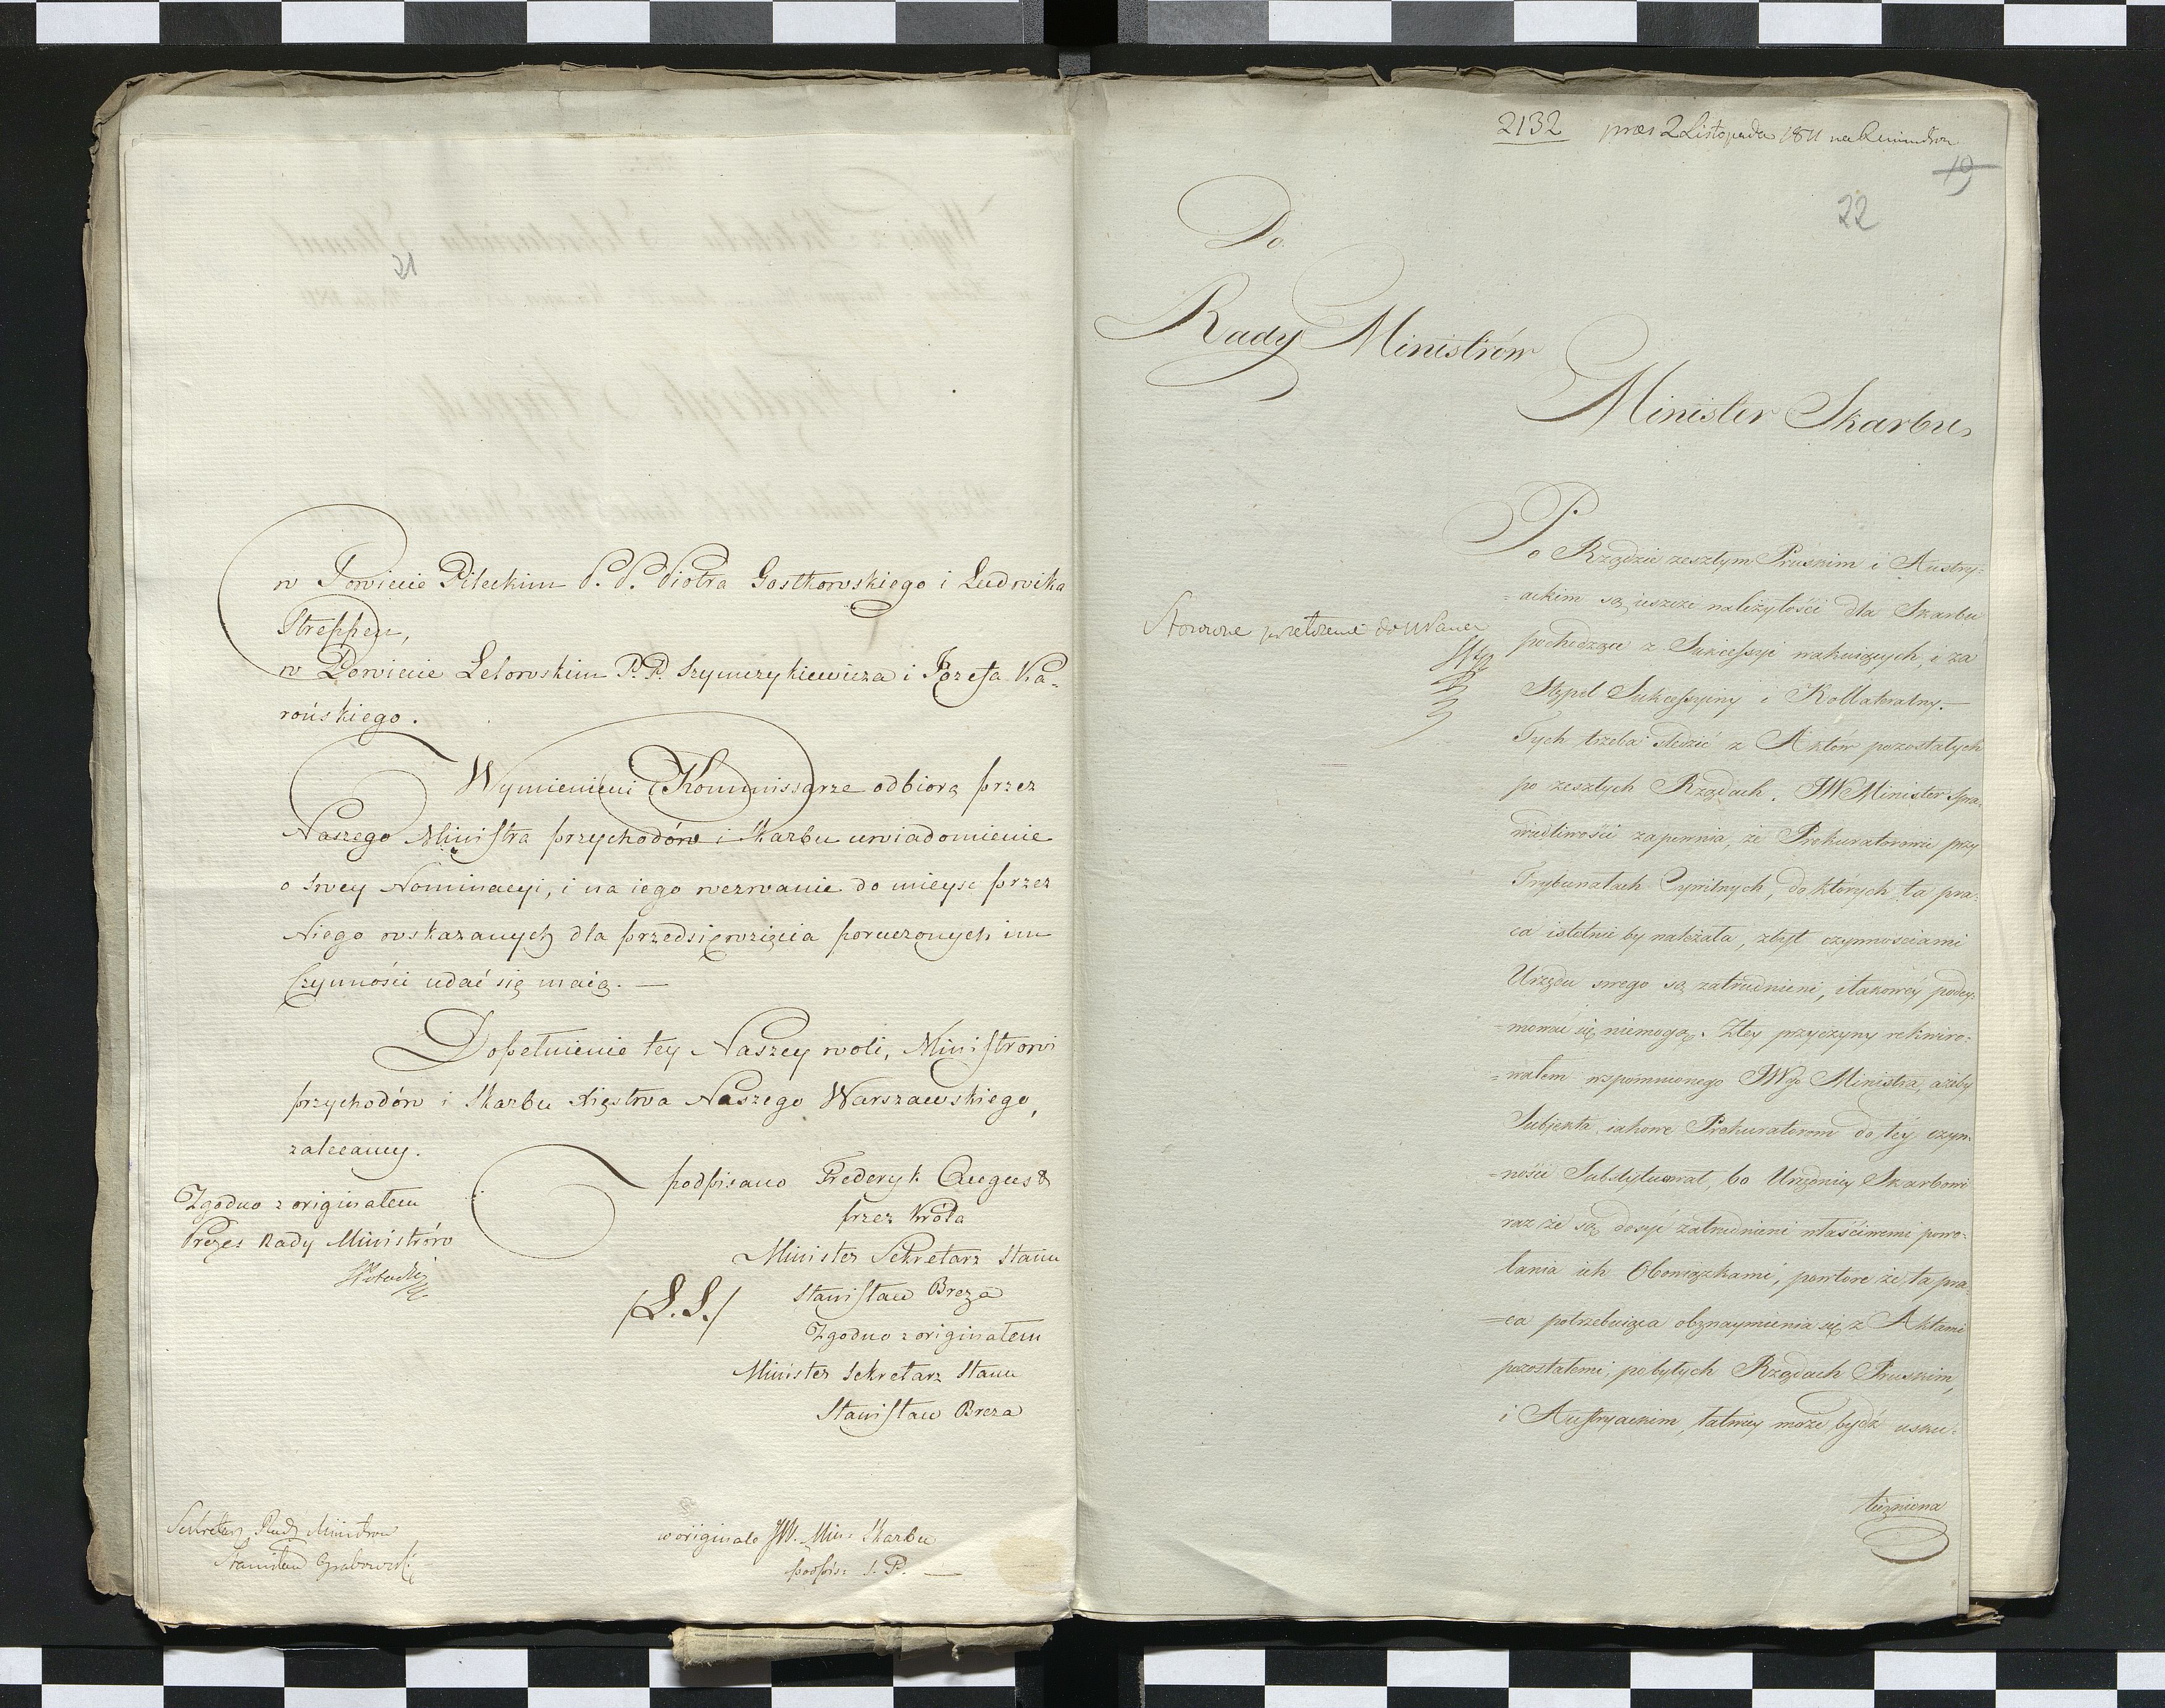 21
w Powiecie Pileckim P. P. Piotra Gostkowskiego i Ludwika
Streppen,
w Powiecie Lelowskim P. P. Szymczykiewicza i Jozefa Ka-
rońskiego.
Wymienieni Kommissarze odbiorą przez
Naszego Ministra przychodów i Skarbu uwiadomienie
o swey Nominacyi, i na iego wezwanie do mieysc przez
Niego wskazanych dla przedsięwzięcia poruczonych im
Czynności udać się maią. —
Dopełnienie tey Naszey woli, Ministrowi
przychodów i Skarbu Xięstwa Naszego Warszawskiego,
zalecamy.
podpisano Frederyk August
przez Króla
Minister Sekretarz Stanu
/L.S./ Stanisław Breza
Zgodno z originałem
Minister Sekretarz Stanu
Stanisław Breza
Zgodno z originałem
Prezes Rady Ministrów
Sekretarz Rady Ministrow
Stanisław Grabowski
w originale JW. Min: Skarbu
podpis:
2132 prez 2 Listopada 1811
19
22
Do
Rady Ministrów
Minister Skarbu
Po Rządzie zeszłym Pruskim i Austry-
=ackim są ieszcze należytości dla Skarbu
pochodzące z Sukcessyi wakuiących, i za
Stępel Sukcessyiny i Kollateralny. —
Tych trzeba śledzić z Aktów pozostałych
po zeszłych Rządach. JW Minister Spra-
wiedliwości zapewnia, że Prokuratorowie przy
Trybunałach Cywilnych, do których ta pra-
ca istotnie by należała, zbyt czynnościami
Urzędu swego są zatrudnieni, i takowéy podey-
=mować się niemogą. Ztey przyczyny rekwiro-
=wałem wspomnionego JWgo Ministra, ażeby
Subjekta iakowe Prokuratorom do téy czyn-
=ności Substytuował, bo Urzędnicy Skarbowi
raz że są dosyć zatrudnieni właściwemi powo-
łania ich Obowiązkami, powtore że ta pra-
=ca potrzebuiąca obznaymienia się z Aktami
pozostałemi po byłych Rządach Pruskim,
i Austryackim, łatwiey może bydź usku-
teczniona